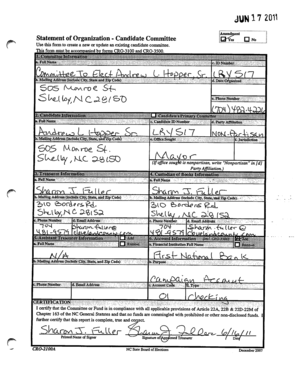 JUN 17 2011
Statement of Organization - Candidate Committee
Amended
Yes No
Use this form to create a new or update an existing candidate committee.
This form must be accompanied by forms CRO-3100 and CRO-3500.
1. Committee Information
a. Full Name
c. ID Number
Committee To Elect Andrew L Hopper, Sr.
LRY517
b. Mailing Address (include City, State and Zip Code)
d. Date Organized
505 Monroe St.
Shelby, NC 28150
e. Phone Number
(704) 482-4226
2. Candidate Information
Candidate's Primary Committee
a. Full Name
c. Candidate ID Number
d. Party Affiliation
Andrew L Hopper Sr.
LRY517
Non-Partisan
b. Mailing Address (include City, State, and Zip Code)
e. Office Sought
f. Jurisdiction
505 Monroe St.
Shelby, NC 28150
Mayor
(If office sought is nonpartisan, write "Nonpartisan" in [d] Party Affiliation.)
3. Treasurer Information
4. Custodian of Books Information
a. Full Name
a. Full Name
Sharon J. Fuller
Sharon J. Fuller
b. Mailing Address (include City, State, and Zip Code)
b. Mailing Address (include City, State, and Zip Code)
310 Borders Rd.
310 Borders Rd.
Shelby, NC 28152
Shelby, NC 28152
c. Phone Number
d. Email Address
c. Phone Number
d. Email Address
704
704
sharon.fuller@
5. Assistant Treasurer Information
6. Account Information
a. Full Name
a. Financial Institution Full Name
N/A
First National Bank
b. Mailing Address (include City, State, and Zip Code)
b. Purpose
Campaign Account
c. Phone Number
d. Email Address
c. Account Code
d. Type
01
Checking
CERTIFICATION
I certify that the Committee or Fund is in compliance with all applicable provisions of Article 22A, 22B & 22D-22M of
Chapter 163 of the NC General Statutes and that no funds are commingled with prohibited or other non-disclosed funds. I
further certify that this report is complete, true and correct.
Sharon J. Fuller
Sharon J. Fuller
6/16/11
Printed Name of Signer
Signature of Appointed Treasurer
Date
CRO-2100A
NC State Board of Elections
December 2007